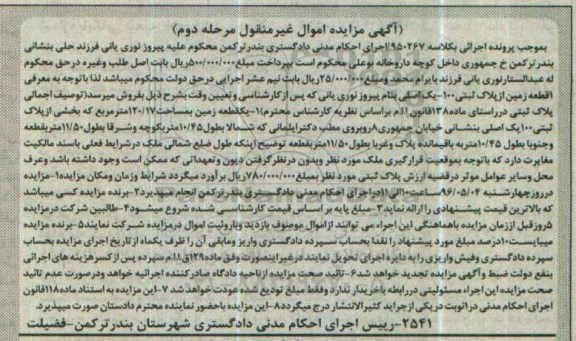 (آگهی مزایده اموال غیرمنقول مرحله دوم)
بموجب پرونده اجرائی بکلاسه ۹۵۰۲۶۷/اجرای احکام مدنی دادگستری بندرترکمن محکوم علیه پیروز نوری یانی فرزند حلی بنشانی
بندرترکمن خ جمهوری داخل کوچه داروخانه بوعلی محکوم است بپرداخت مبلغ ۵۰۰/۰۰۰/۰۰۰ریال بابت اصل طلب وغیره درحق محکوم
له عبدالستارنوری یانی فرزند بایرام محمد و مبلغ ۲۵/۰۰۰/۰۰۰ریال بابت نیم عشر اجرایی درحق دولت محکوم میباشد لذا باتوجه به معرفی
۱قطعه زمین ازپلاک ثبتی ۱۰۰-یک اصلی بنام پیروز نوری یانی که پس از کارشناسی و تعیین وقت بشرح ذیل بفروش میرسد(توصیف اجمالی
پلاک ثبتی درراستای ماده۱۳۸قانون ا.ا.م براساس نظریه کارشناس محترم)۱-یکقطعه زمین بمساحت۱۲۰/۱۷مترمربع که بخشی ازپلاک
ثبتی۱۰۰یک اصلی بنشانی خیابان جمهوری۸روبروی مطب دکترایلمانی که شمالا بطول۱۰/۴۵متربکوچه وشرقا بطول۱۱/۵۰متربقطعه
وجنوبا بطول ۱۰/۴۵متربه باقیمانده پلاک وغربا بطول۱۱/۵۰متربقطعه توضیح اینکه طول ضلع شمالی ملک در شرایط فعلی باسند مالکیت
مغایرت دارد که باتوجه بموقعیت قرارگیری ملک مورد نظر وبدون درنظرگرفتن دیون وتعهداتی که ممکن است وجود داشته باشد وعرف
محل وسایر عوامل موثر درقضیه ارزش پلاک ثبتی مورد نظر بمبلغ۷۸۰/۰۰۰/۰۰۰ریال برآورد میگردد شرایط وزمان ومکان مزایده ۱-مزایده
درروزچهارشنبه ۹۶/۰۵/۰۴ساعت۱۰الی۱۱دراجرای احکام مدنی دادگستری بندر ترکمن انجام میپذیرد۲-برنده مزایده کسی میباشد
که بالاترین قیمت پیشنهادی را ارائه نماید۳-مبلغ پایه بر اساس قیمت کارشناسی شده شروع میشود۴-طالبین شرکت درمزایده
۵روزقبل اززمان مزایده باهماهنگی این اجراء می توانند ازاموال موصوف بازدید وباروئیت اموال درمزایده شرکت نمایند۵-برنده مزایده
میبایست۱۰درصد مبلغ مورد پیشنهاد را نقدا بحساب سپرده دادگستری واریز ومابقی آن را ظرف یکماه ازتاریخ اجرای مزایده بحساب
سپرده دادگستری وفیش واریزی را به دایره اجرای تحویل نمایند درغیراینصورت وفق ماده۱۲۹ق.ا.ا.م سپرده پس از کسرهزینه های اجرائی
بنفع دولت ضبط وآگهی مزایده تجدید خواهد شد۶-تائید صحت مزایده ازناحیه دادگاه صادرکننده اجرائیه خواهد ودرصورت عدم تائید
صحت مزایده این اجراء مسئولیتی دررابطه باخریدار ندارد وفقط مبلغ تودیع شده عودت خواهد شد ۷-این مزایده به استناد ماده۱۱۸قانون
اجرای احکام مدنی در۱نوبت دریکی ازجراید کثیرالانتشار درج میگردد۸-این مزایده باحضور نماینده محترم دادستان صورت میپذیرد.
۲۵۴۱-رییس اجرای احکام مدنی دادگستری شهرستان بندرترکمن-فضیلت